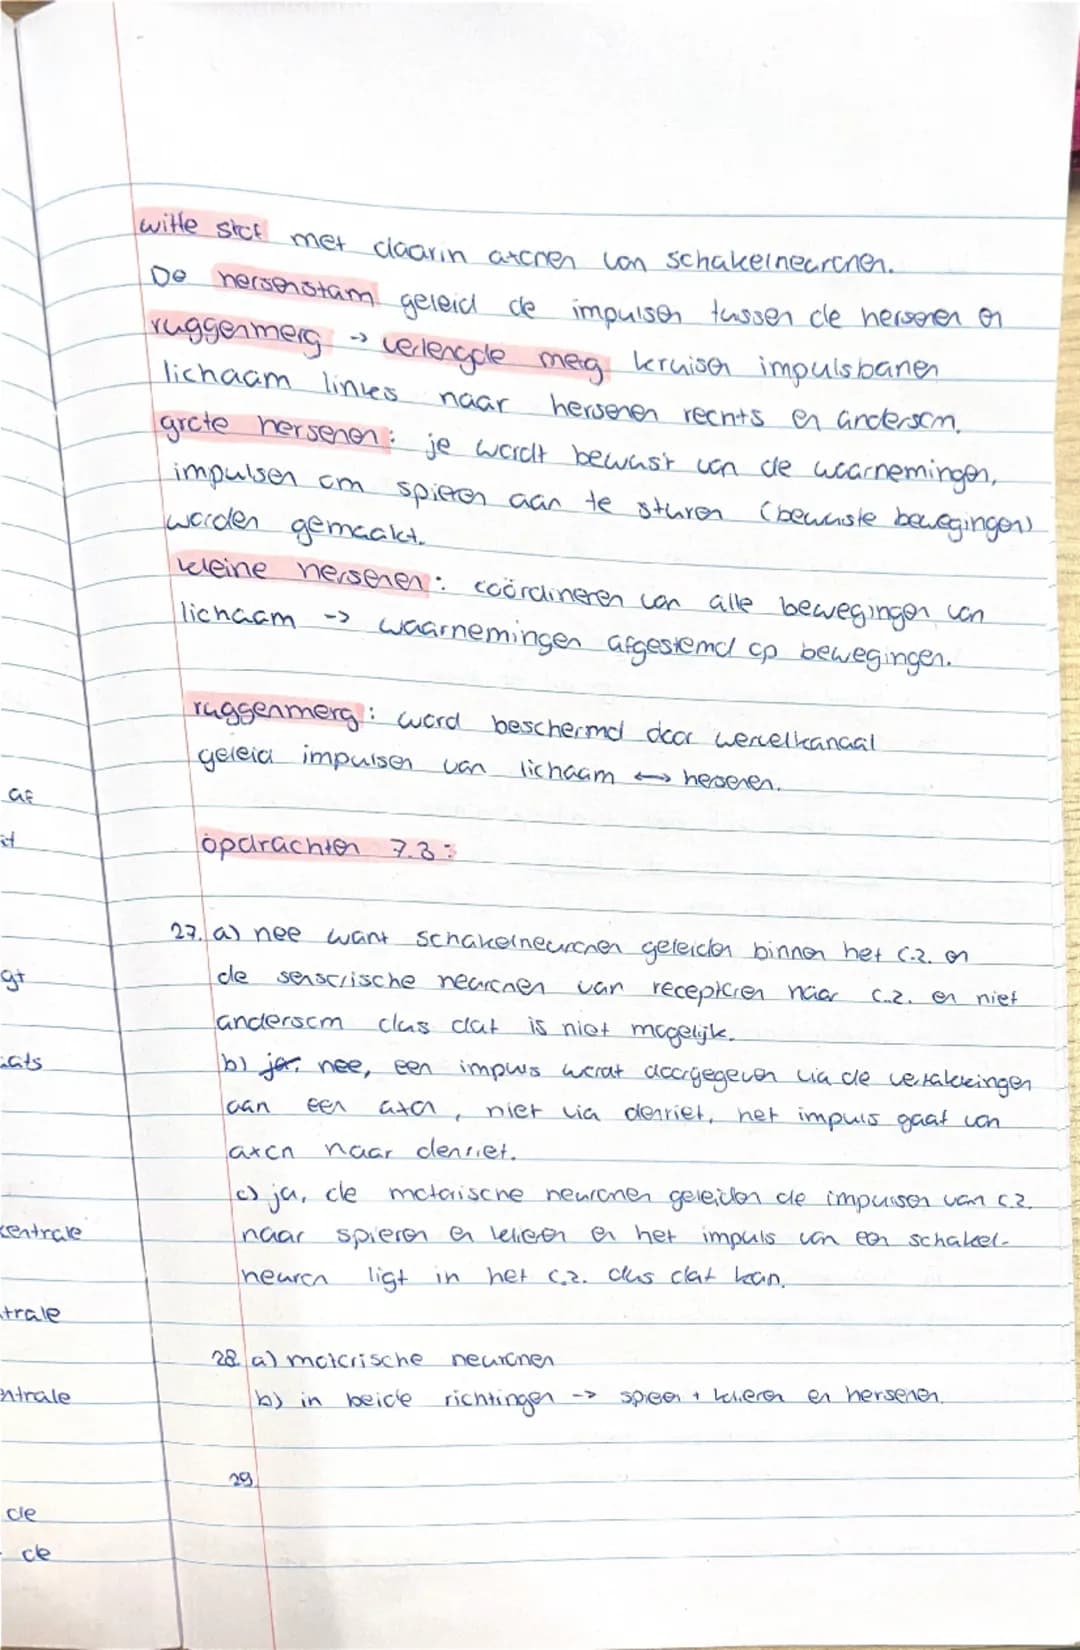 witte stof met daarin axonen van schakelneuronen.
De hersenstam geleid de impulsen tussen de hersenen en
ruggenmerg -> verlengde merg kruisen impulsbanen
lichaam links naar hersenen rechts en andersom.
grote hersenen: je wordt bewust van de waarnemingen,
impulsen om spieren aan te sturen (bewuste bewegingen)
worden gemaakt.
kleine hersenen: coördineren van alle bewegingen van
lichaam -> waarnemingen afgestemd op bewegingen.
ruggenmerg: word beschermd door wervelkanaal
geleid impulsen van lichaam <-> hersenen.
af
it
opdrachten 7.3:
27. a) nee want schakelneuronen geleiden binnen het c.z. en
gt
de sensorische neuronen van receptoren naar c.z. en niet
andersom dus dat is niet mogelijk.
aats
b) ja. nee, een impuls wordt doorgegeven via de vertakkingen
aan een axon, niet via denriet, het impuls gaat van
axon naar denriet.
c) ja, de motorische neuronen geleiden de impulsen van c.z.
centrale
naar spieren en klieren en het impuls van een schakel-
neuron ligt in het c.z. dus dat kan.
trale
28. a) motorische neuronen
ntrale
b) in beide richtingen -> spieren + klieren en hersenen.
29.
de
de